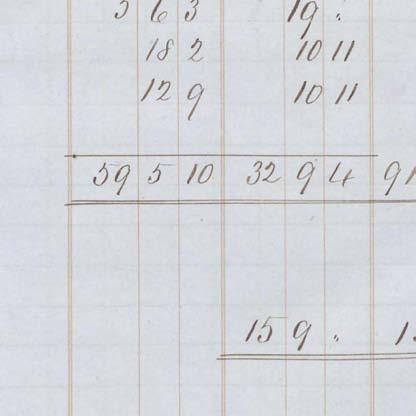 5 6 3 19 "
18 2 10 11
12 9 10 11
59 5 10 32 9 4 91
15 9 "